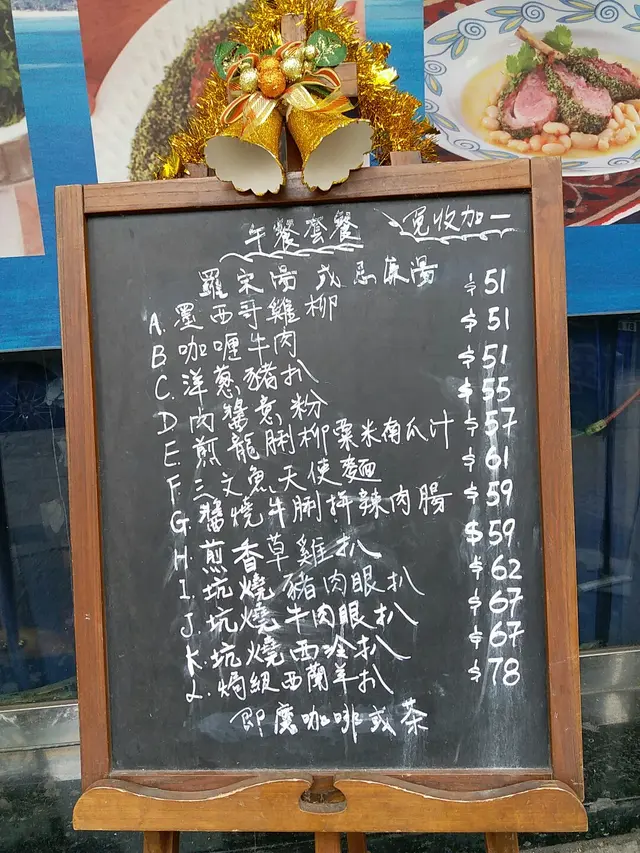 午餐套餐 免收加一
羅宋湯或忌廉湯
A. 墨西哥雞柳 $51
B 咖喱牛肉 $51
C. 洋蔥豬扒 $51
D 肉醬意粉 $55
E. 煎龍脷柳粟米南瓜汁 $57
F. 三文魚天使麵 $61
G. 醬燒牛脷拼辣肉腸 $59
H. 煎香草雞扒 $59
I. 坑燒豬肉眼扒 $62
J. 坑燒牛肉眼扒 $67
K. 坑燒西冷扒 $67
L. 焗級西蘭羊扒 $78
即磨咖啡或茶